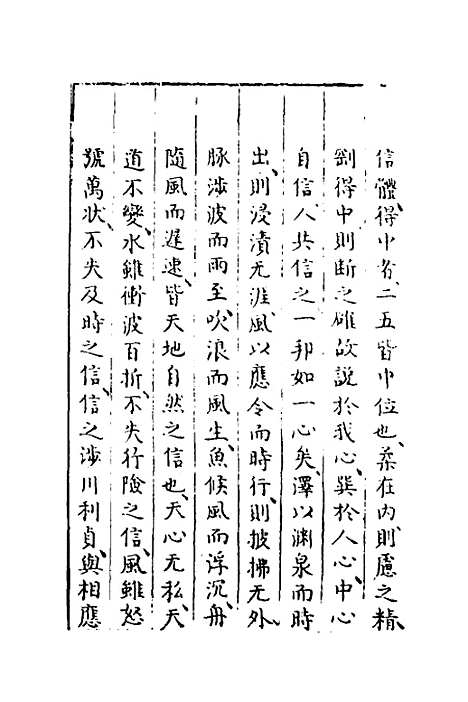 信體、得中者、二五皆中位也、柔在內、則慮之精、
劉得中則斷之確故說於我心、巽於人心、中心
自信、人共信之一邦如一心矣、澤以淵泉而時
出、則浸漬无涯、風以應令而時行、則披拂无外、
豚涉波而雨至、吹浪而風生、魚候風而浮沉、舟
隨風而遲速、皆天地自然之信也、天心无私、天
道不變、水雖衝波百折、不失行險之信、風雖怒
號萬狀、不失及時之信、信之涉川利貞、與相應